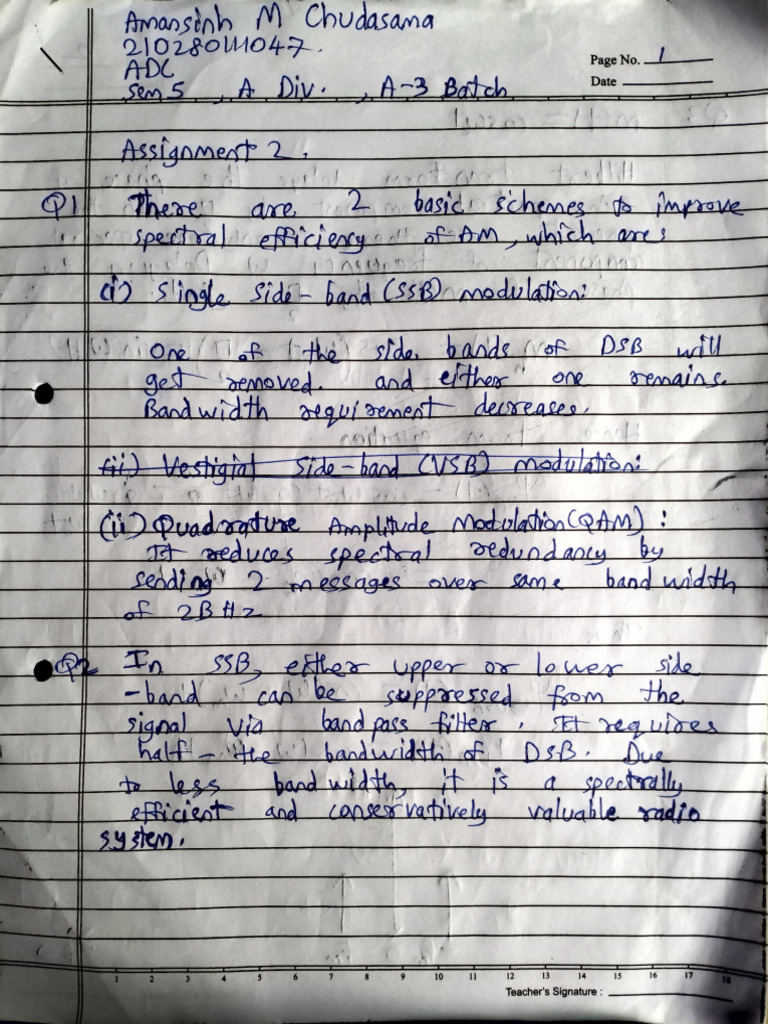 Amansinh M Chudasama
210280111047.
ADC
Page No. 1
Sem 5 , A Div. , A-3 Batch
Date
Assignment 2.
Q1 There are 2 basic schemes to improve
spectral efficiency of AM, which are:
(i) Single side-band (SSB) modulation:
One of the side bands of DSB will
get removed. and either one remains.
Bandwidth requirement decreases.
(ii) Vestigial side-band (VSB) modulation:
(ii) Quadrature Amplitude Modulation (QAM) :
It reduces spectral redundancy by
sending 2 messages over same bandwidth
of 2B Hz
Q2 In SSB, either upper or lower side
-band can be suppressed from the
signal via bandpass filter. It requires
half - the bandwidth of DSB. Due
to less bandwidth, it is a spectrally
efficient and conservatively valuable radio
system.
1 2 3 4 5 6 7 8 9 10 11 12 13 14 15 16 17 18
Teacher's Signature :